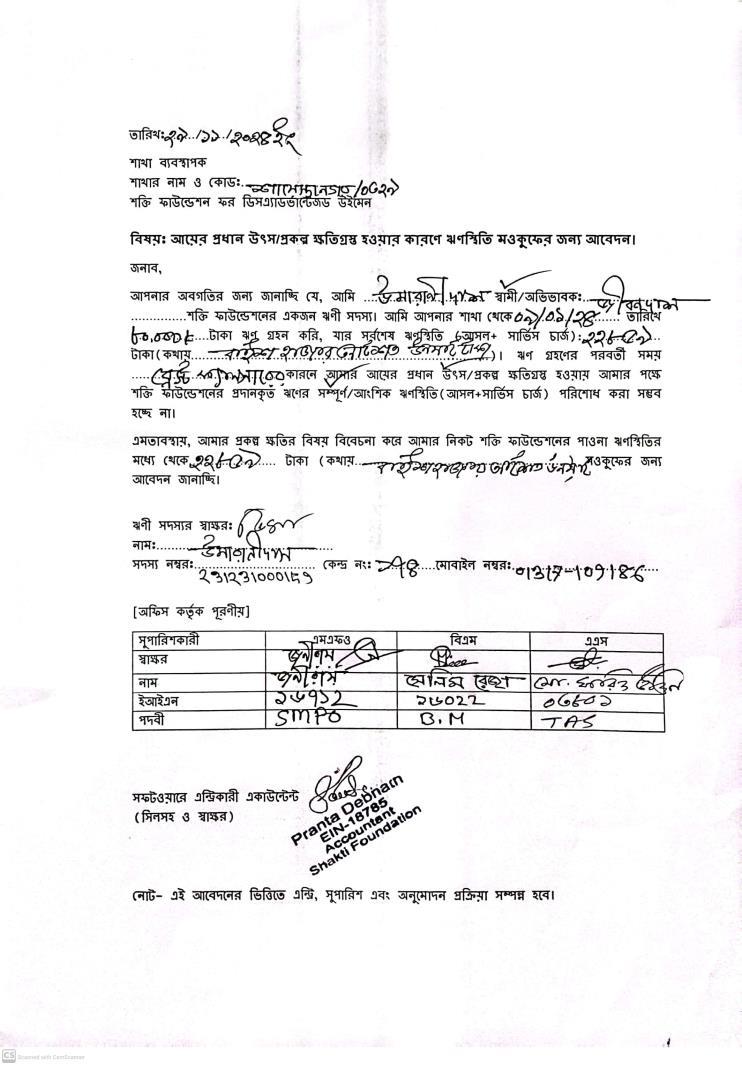 তারিখ:২৯/১১/২০২৪ইং
শাখা ব্যবস্থাপক
শাখার নাম ও কোড:
শক্তি ফাউন্ডেশন ফর ডিসএ্যাডভান্টেজড উইমেন
বিষয়: আয়ের প্রধান উৎস/প্রকল্প ক্ষতিগ্রস্থ হওয়ার কারণে ঋণস্থিতি মওকুফের জন্য আবেদন।
জনাব,
আপনার অবগতির জন্য জানাচ্ছি যে, আমি ...উমারানী দাস স্বামী/অভিভাবক:...জীবন দাস
...............শক্তি ফাউন্ডেশনের একজন ঋণী সদস্য। আমি আপনার শাখা থেকে ০৯/০১/২৪...... তারিখে
৮০,০০০/=...টাকা ঋণ গ্রহন করি, যার সর্বশেষ ঋণস্থিতি (আসল+ সার্ভিস চার্জ):২২৮৫৯...
টাকা (কথায়.....বাইশ হাজার আটশত উনষাট)। ঋণ গ্রহণের পরবর্তী সময়
কারনে আমার আয়ের প্রধান উৎস/প্রকল্প ক্ষতিগ্রস্থ হওয়ায় আমার পক্ষে
শক্তি ফাউন্ডেশনের প্রদানকৃত ঋণের সম্পূর্ণ/আংশিক ঋণস্থিতি(আসল+সার্ভিস চার্জ) পরিশোধ করা সম্ভব
হচ্ছে না।
এমতাবস্থায়, আমার প্রকল্প ক্ষতির বিষয় বিবেচনা করে আমার নিকট শক্তি ফাউন্ডেশনের পাওনা ঋণস্থিতির
মধ্যে থেকে ২২৮৫৯..... টাকা (কথায়....বাইশ হাজার আটশত উনষাট মওকুফের জন্য
আবেদন জানাচ্ছি।
ঋণী সদস্যর স্বাক্ষর:
নাম:.........উমারানী দাস
সদস্য নম্বর: 231231000159 কেন্দ্র নং: ৭৪....মোবাইল নম্বর: 01317-109186....
[অফিস কর্তৃক পূরণীয়]
সুপারিশকারী এমএফও বিএম এএস
স্বাক্ষর
নাম
ইআইএন ১৬৭১২ ১৬০২২ ০৬৮০১
পদবী SMPO B.M TAS
সফটওয়ারে এন্ট্রিকারী একাউন্টেন্ট
(সিলসহ ও স্বাক্ষর)
Pranta Debnath
EIN-18785
Accountant
Shakti Foundation
নোট- এই আবেদনের ভিত্তিতে এন্ট্রি, সুপারিশ এবং অনুমোদন প্রক্রিয়া সম্পন্ন হবে।
CS Scanned with CamScanner